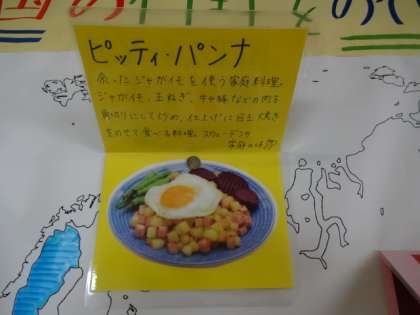 国の
の
ピッティ・パンナ
余ったジャガイモを使う家庭料理。
ジャガイモ、玉ねぎ、牛や豚などの肉を
角切りにして炒め、仕上げに目玉焼き
をのせて食べる料理。スウェーデンの
家庭の味